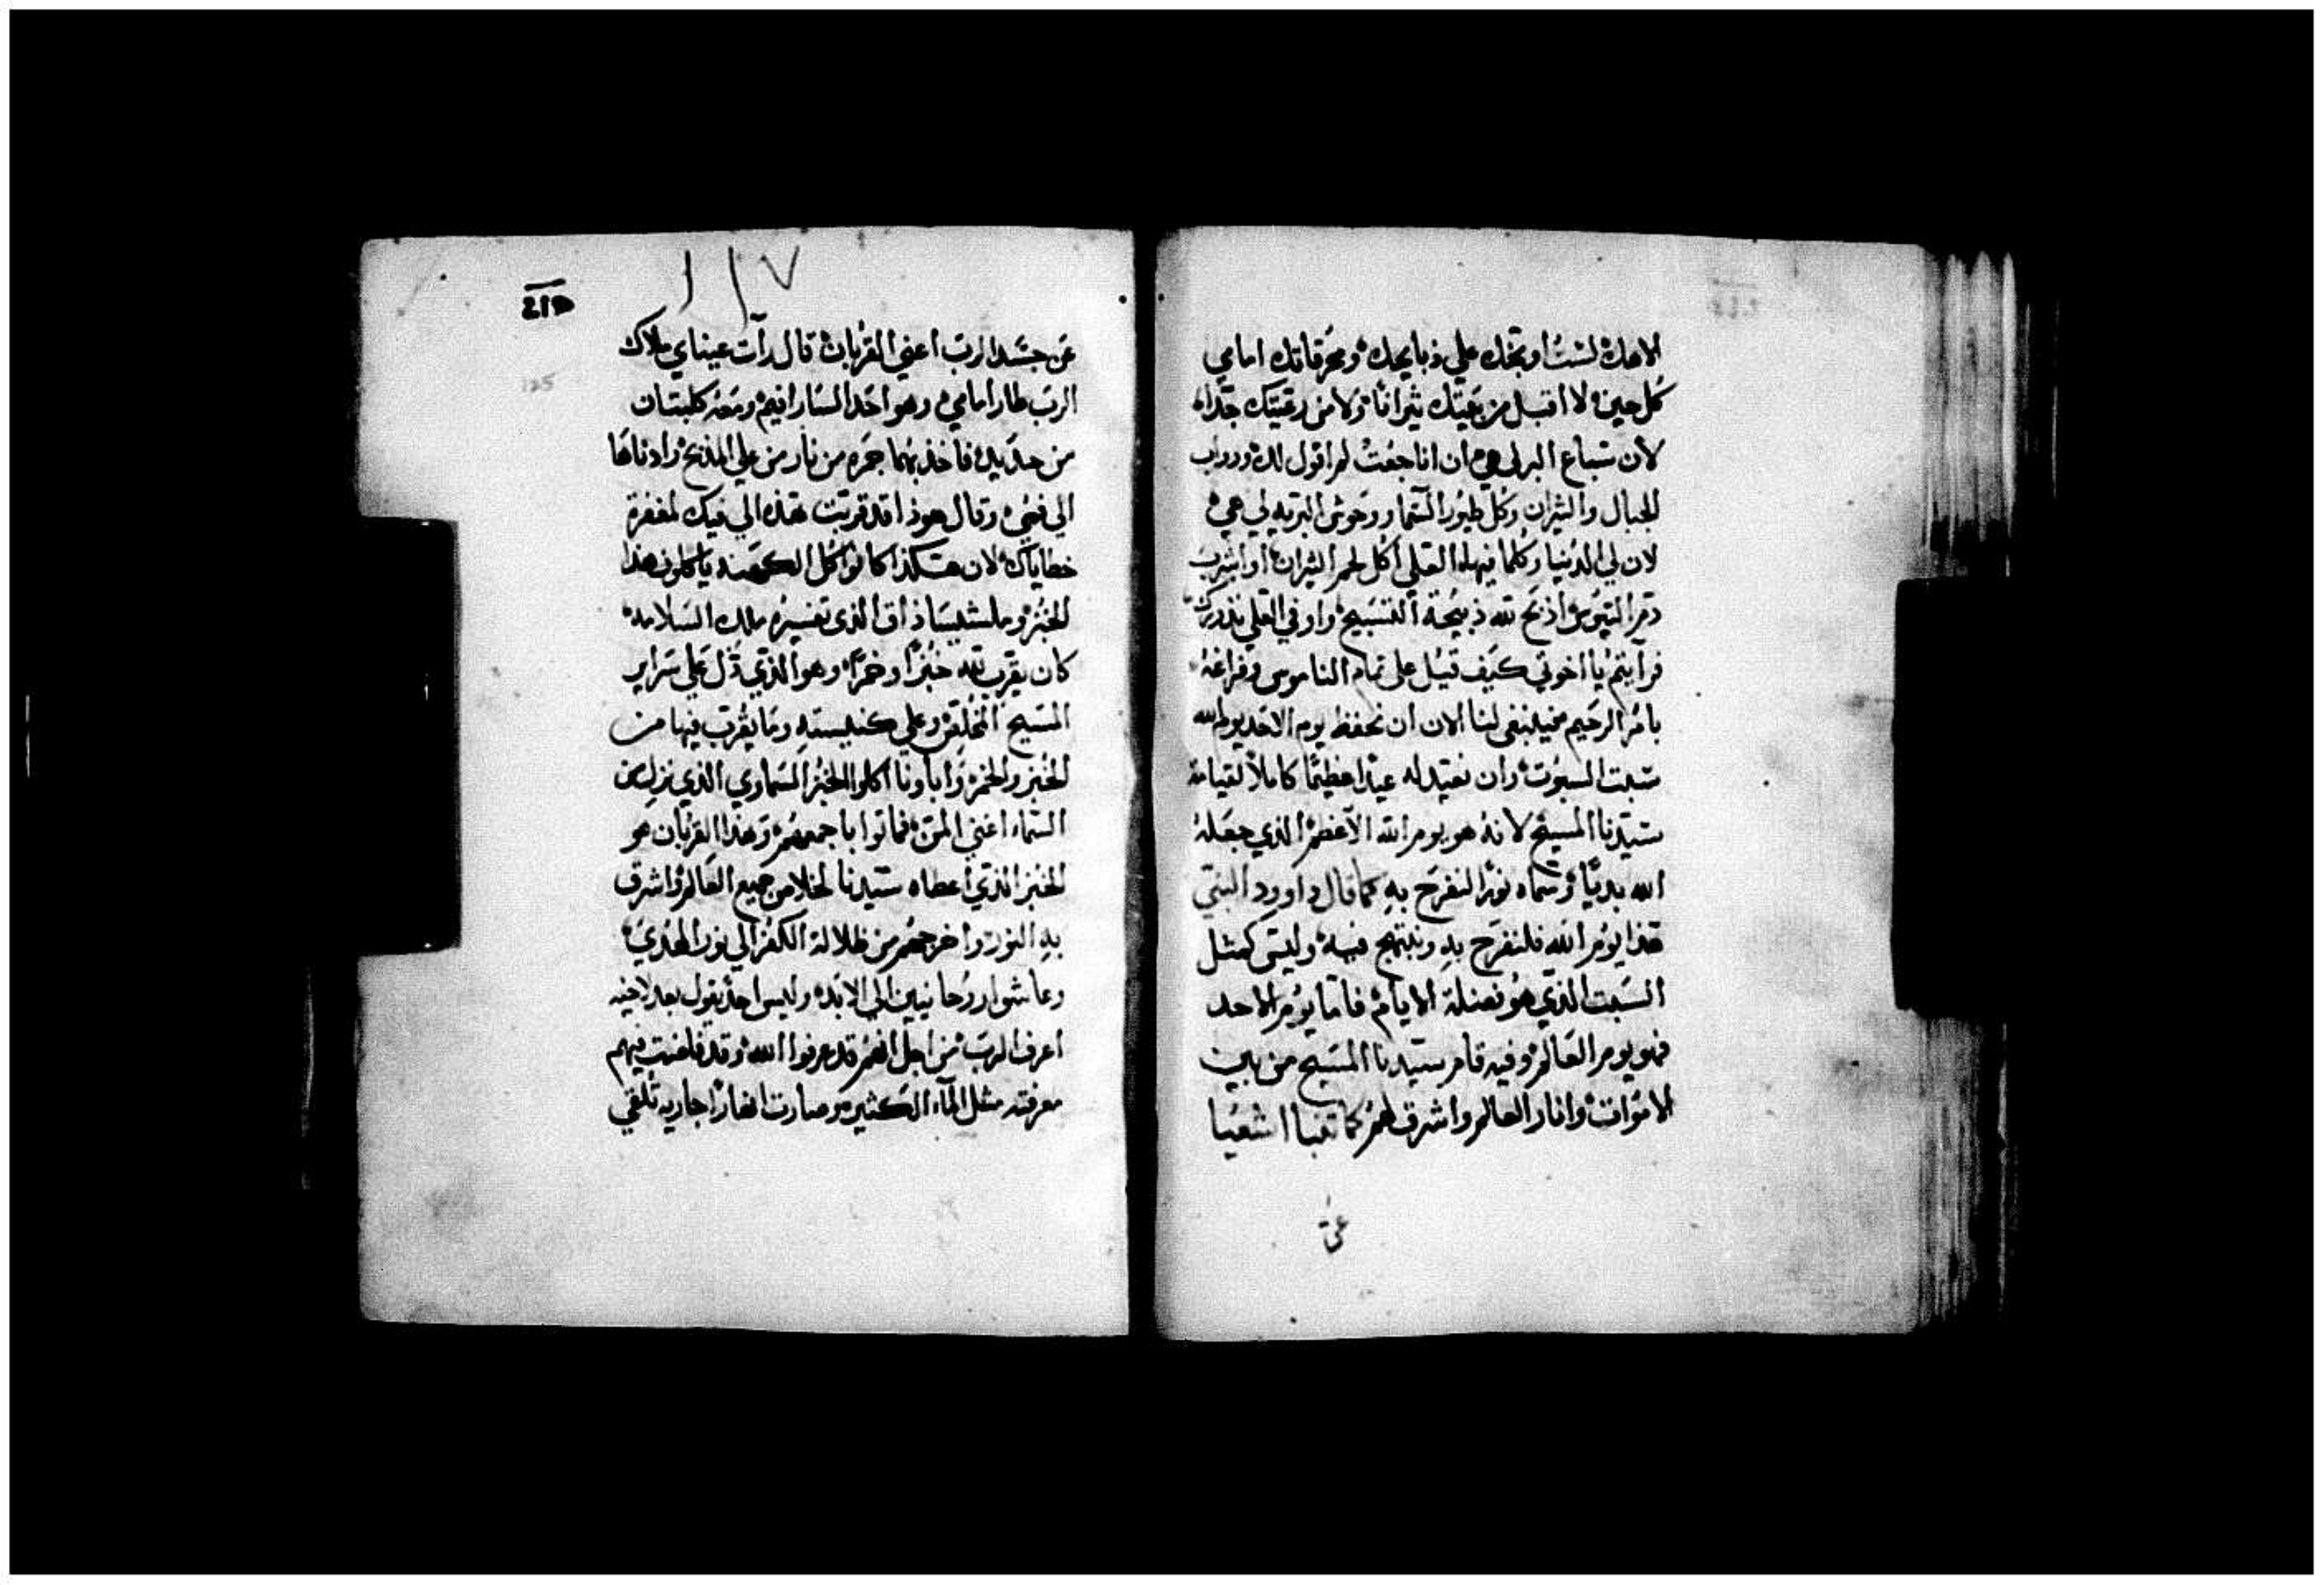 الاهك لستُ اوبخك علي ذبايحك ومحرقاتك امامي
كل حين لا اقبل من بيتك ثيرانًا ولا من رعيتك جداه
لان سباع البر لي هي ان انا جعت لم اقول لك ودواب
الجبال والثيران وكل طيور السما ووحوش البريه لي هي
لان لي الدنيا وكلما فيها العلي اكل لحم الثيران او اشرب
دم التيوس اذبح لله ذبيحة التسبيح واوفي العلي نذورك
فرايتم يا اخوتي كيف قيل علي تمام الناموس وفراغه
بامر الرحيم فينبغي لنا الان ان نحفظ يوم الاحد يوم الله
سبت السبوت وان نعيد له عيدا عظيمًا كاملاً لقيامة
سيدنا المسيح لانه هو يوم الله الاعظم الذي جعله
الله بديًّا وسماه نورًا لنفرح به كما قال داوود النبي
هذا يوم الله فلنفرح به ونبتهج فيه وليس كمثل
السبت الذي هو فضلة الايام فاما يوم الاحد
فهو يوم العالم وفيه قام سيدنا المسيح من بين
الاموات وانار العالم واشرق لهم كما تنبا اشعيا
عن
١١٧
125
عن جسد الرب اعني القربان قال رآت عيناي ملاك
الرب طار امامي وهو احد السارافيم ومعه كلبتان
من حديد فاخذ بهما جمره من نار من علي المذبح وادناها
الي فمي وقال هوذا قد قربت هذه الي فيك لمغفرة
خطاياك لان هكذا كانوا كل الكهنه ياكلون هذا
الخبز وملشيساذاق الذي تفسيره ملك السلامه
كان يقرب لله خبزًا وخمرًا وهو الذي دل علي سراير
المسيح الخلقه وعلي كنيسته وما يقرب فيها من
الخبز والخمر واباونا اكلوا الخبز السماوي الذي نزل من
السماء اعني المن فماتوا باجمعهم وهذا القربان هو
الخبز الذي اعطاه سيدنا لخلاص جميع العالم واشرق
به النور واخرجهم من ظلالة الكفر الي نور الهدي
وعاشوا روحانيين الي الابد وليس احد يقول بعد لاخيه
اعرف الرب من اجل انهم قد عرفوا الله وقد فاضت فيهم
معرفته مثل الماء الكثيره وصارت انهارًا جاريه تلقي